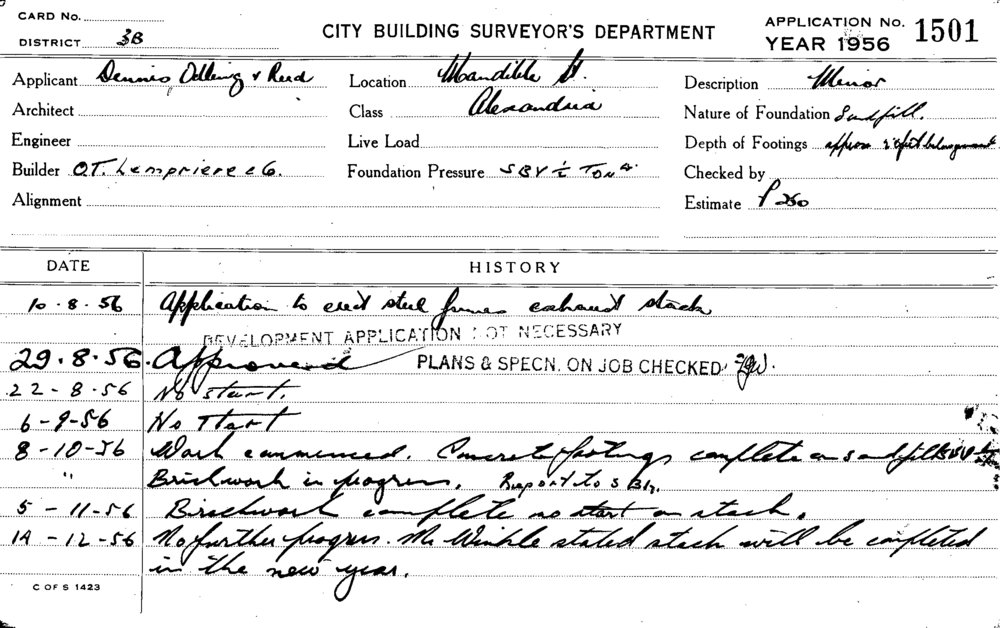 CARD No.
DISTRICT 3B
CITY BUILDING SURVEYOR'S DEPARTMENT
APPLICATION No. 1501
YEAR 1956
Applicant Dennis Odling & Reid
Location Mandible St.
Description Minor
Architect
Class Alexandria
Nature of Foundation Sandfill.
Engineer
Live Load
Depth of Footings approx
Builder O.T. Lempriere & Co.
Foundation Pressure SBV ½ Ton
Checked by
Alignment
Estimate £ 250
DATE
HISTORY
10.8.56 Application to erect steel exhaust stack
DEVELOPMENT APPLICATION NOT NECESSARY
29.8.56. Approved PLANS & SPECN. ON JOB CHECKED
22-8-56 No start.
6-9-56 No start
8-10-56 Work commenced. Concrete footings complete on sandfill
" Brickwork in progress. Report to
5-11-56 Brickwork complete no start on stack.
14-12-56 No further progress. Mr Winkle stated stack will be completed
in the new year.
C OF S 1423